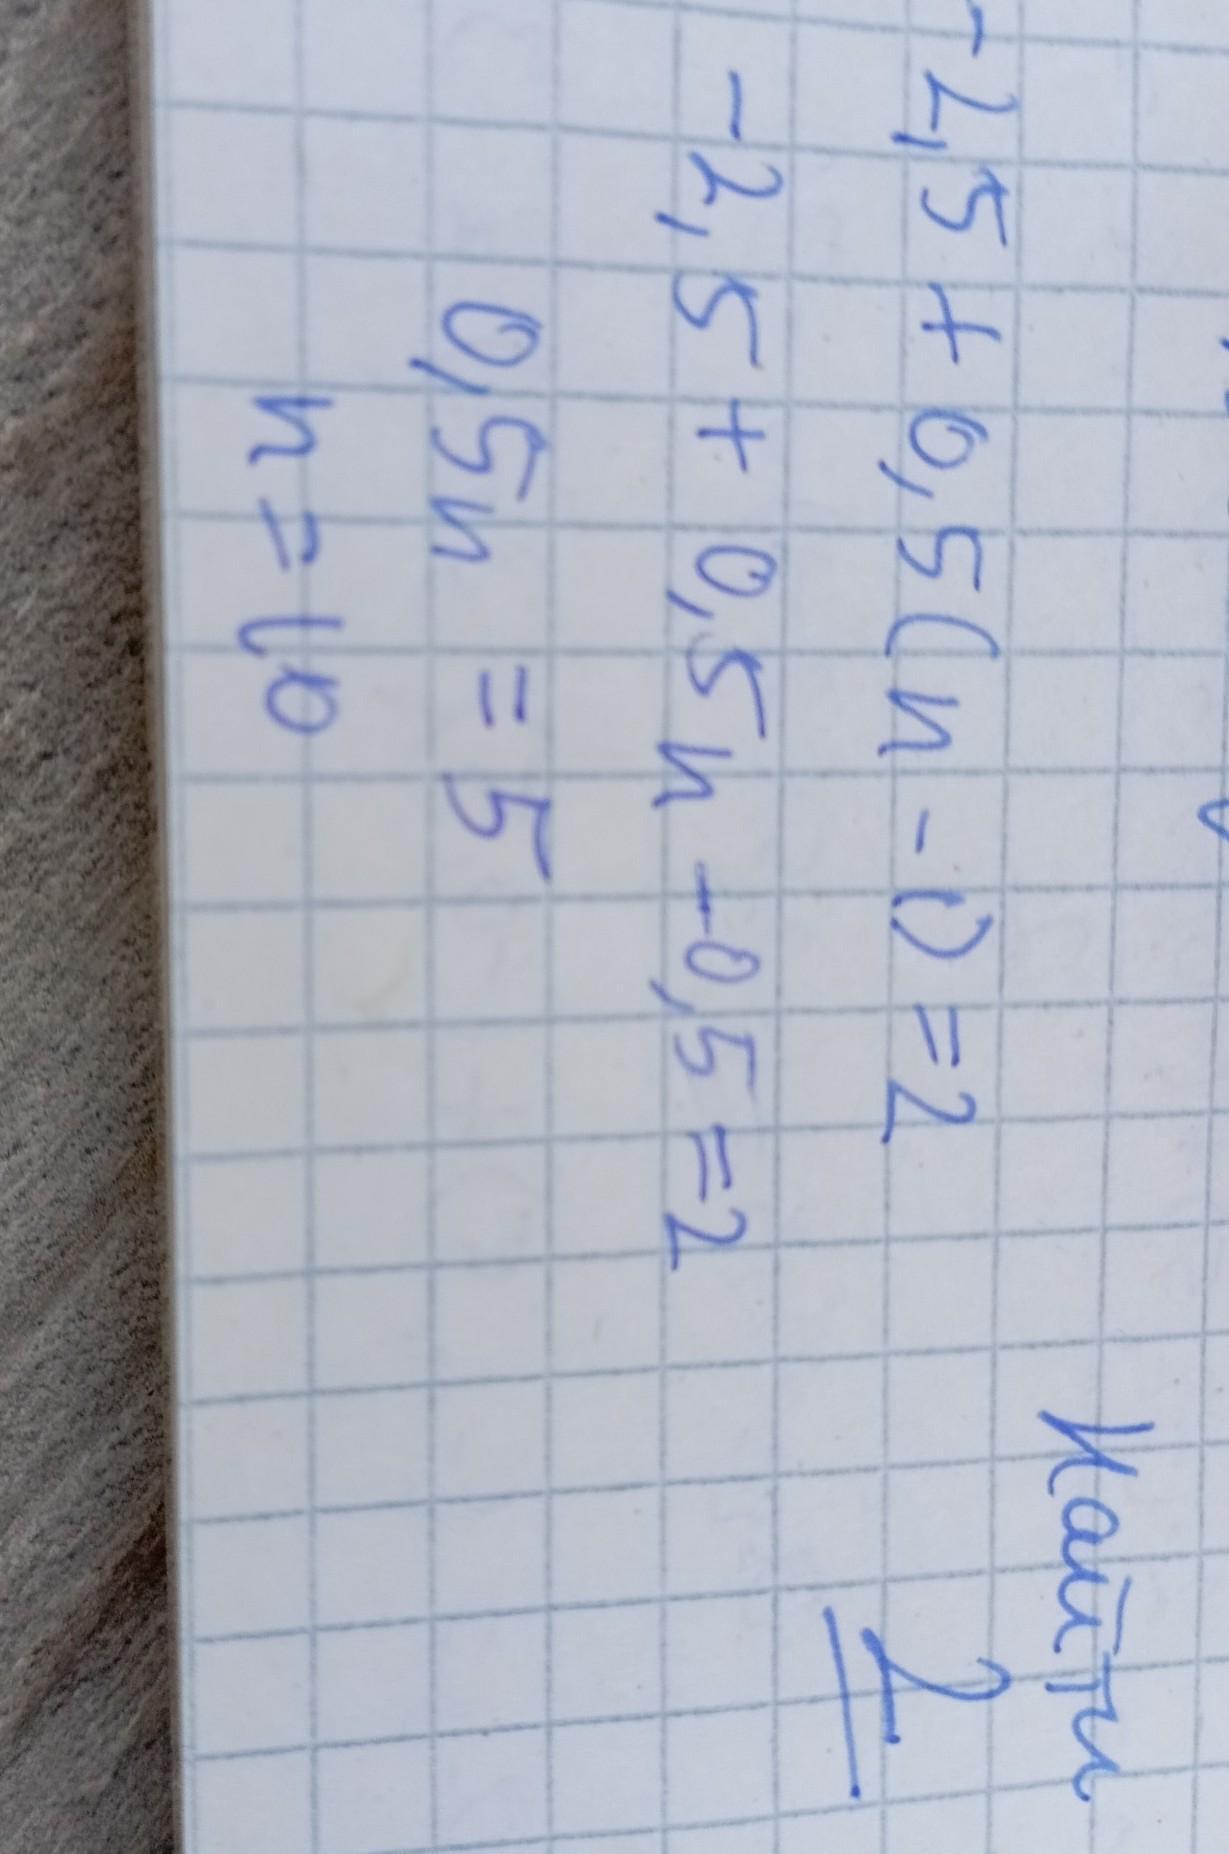 -2,5 + 0,5(n - 1) = 2
-2,5 + 0,5n - 0,5 = 2
0,5n = 5
n = 10
Найти
2